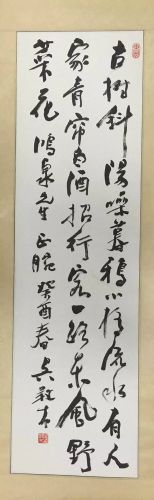 古樹斜陽噪暮鴉小橋流水有人
家青帘白酒招行客一路东風野
菜花 鴻泉先生正腕 癸酉春